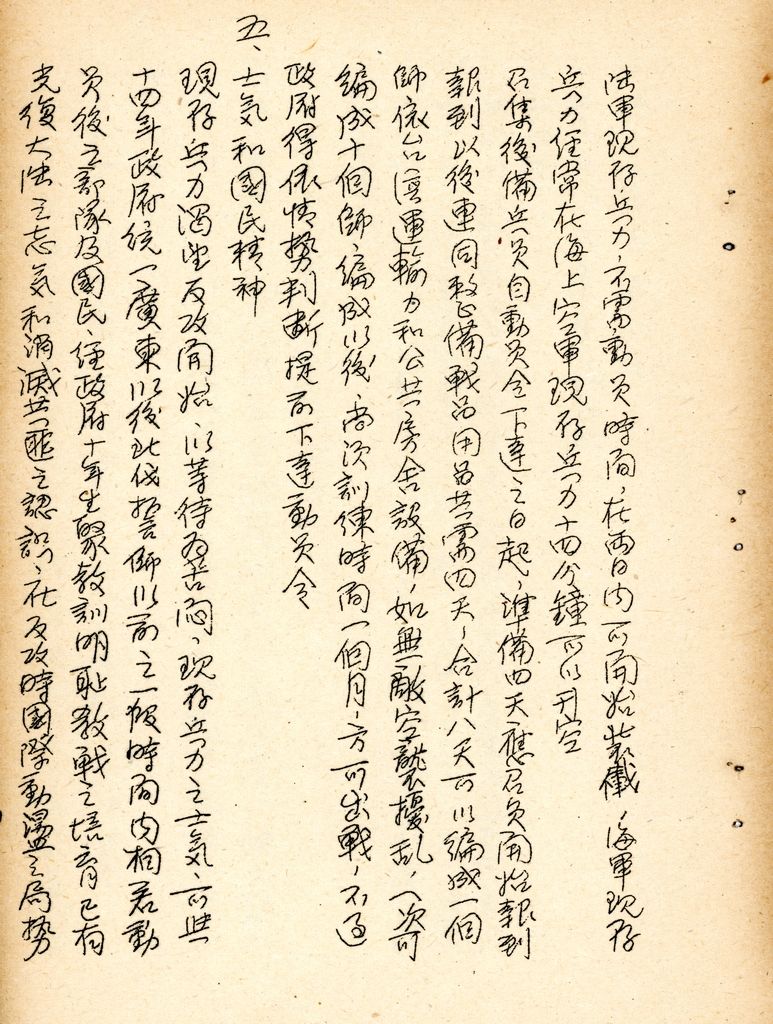 陸軍現存兵力、不需動員時間、在兩日內可開始裝儎、海軍現存
兵力經常在海上空軍現存兵力十四分鐘可以升空
召集後備兵員自動員令下達之日起、準備四天應召員開始報到
報到以後連同整備戰品用品共需四天、合計八天可以編成一個
師依台湾運輸力和公共房舍設備、如無敵空襲擾乱、一次可
編成十個師、編成以後、尚須訓練時間一個月、方可出戰、不過
政府得依情勢判斷提前下達動員令
五、士気和國民精神
現存兵力渴望反攻開始、以等待為苦悶、現存兵力之士気、可與
十四年政府統一廣東以後北伐誓師以前之一般時間內相若動
員後之部隊及國民、經政府十年生聚教訓明恥教戰之培育已有
克復大陸之志気和消滅共匪之認識、在反攻時國際動盪之局勢